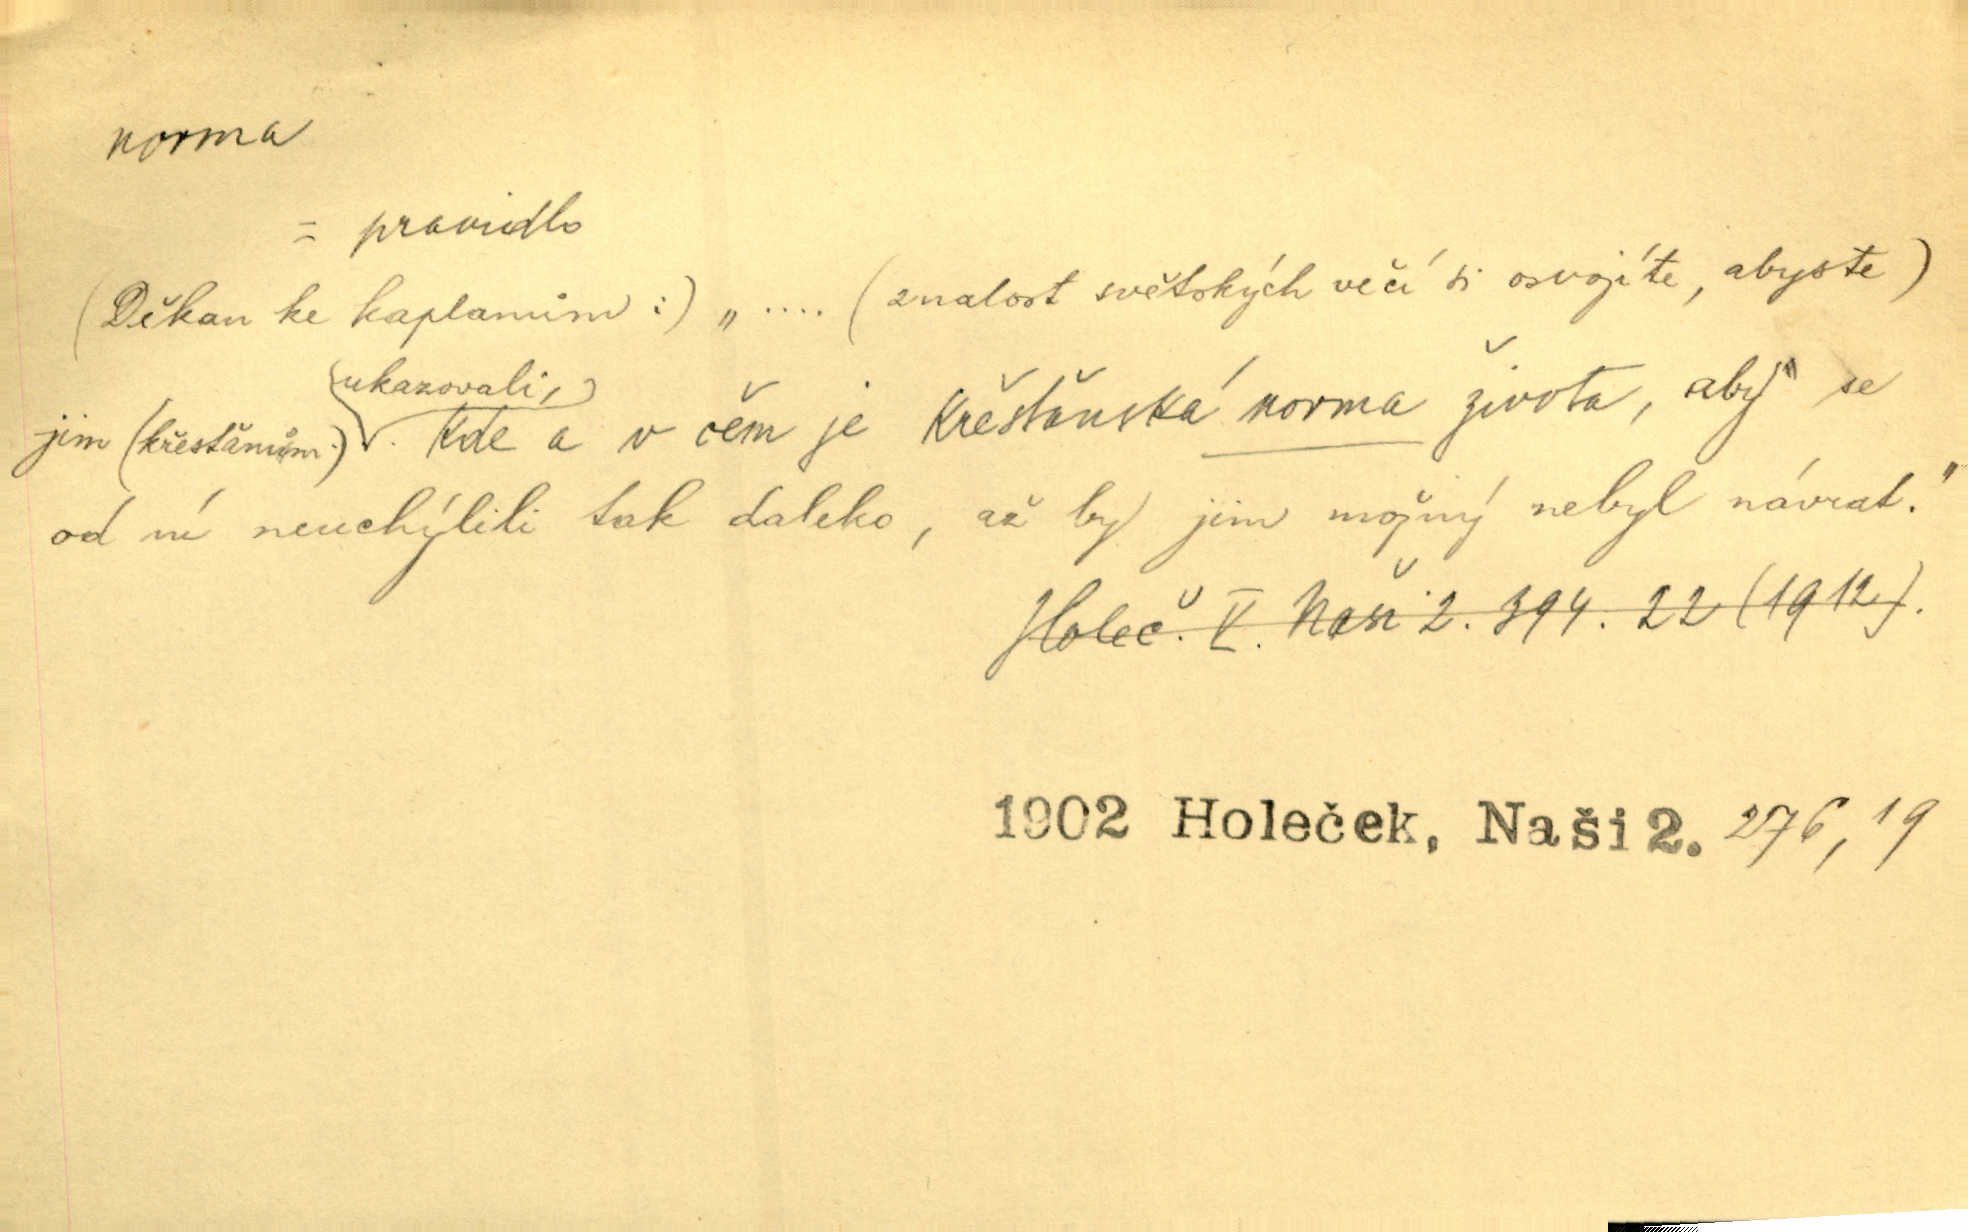 norma
= pravidlo
(Děkan ke kaplanům:) „.... (znalost světských věcí si osvojíte, abyste)
ukazovali,
jim (křesťanům) kde a v čem je křesťanská norma života, aby se
od ní neuchýlili tak daleko, až by jim možný nebyl návrat."
Holeč. V. Naši 2. 394. 22 (1912).
1902 Holeček, Naši 2. 276, 19